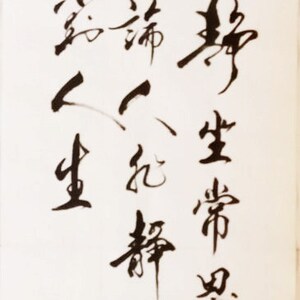 静坐常思
論人非静
對人生